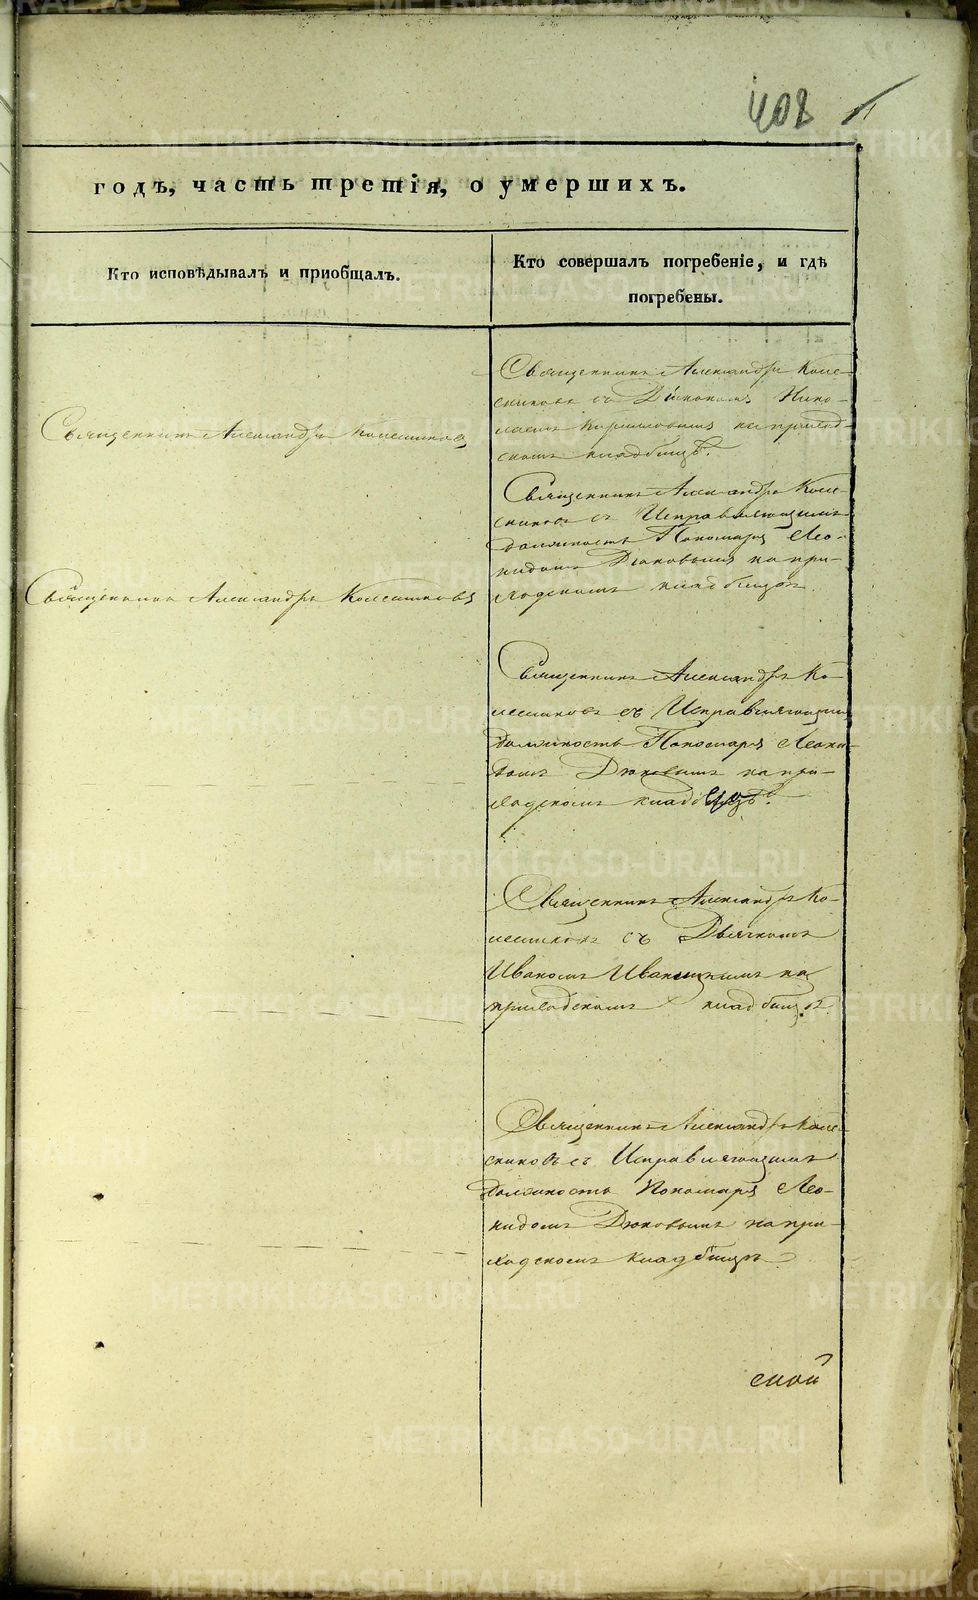 408
годъ, часть третія, о умершихъ.
Кто исповѣдывалъ и пріобщалъ.
Кто совершалъ погребеніе, и гдѣ
погребены.
Священникъ Александръ Колесниковъ
Священникъ Александръ Коле-
сниковъ съ Діакономъ Нико-
лаемъ на приход-
скомъ кладбищѣ.
Священникъ Александръ Колесниковъ
Священникъ Александръ Коле-
сниковъ съ Исправляющимъ
должность Пономаря Лео-
нидомъ Дюковымъ на при-
ходскомъ кладбищѣ
Священникъ Александръ Ко-
лесниковъ съ Исправляющимъ
должность Пономаря Леони-
домъ Дюковымъ на при-
ходскомъ кладбищѣ.
Священникъ Александръ Ко-
лесниковъ съ Дьячкомъ
Иваномъ Иваницкимъ на
приходскомъ кладбищѣ.
Священникъ Александръ Коле-
сниковъ съ Исправляющимъ
должность Пономаря Лео-
нидомъ Дюковымъ на при-
ходскомъ кладбищѣ
ской
METRIKI.GASO-URAL.RU